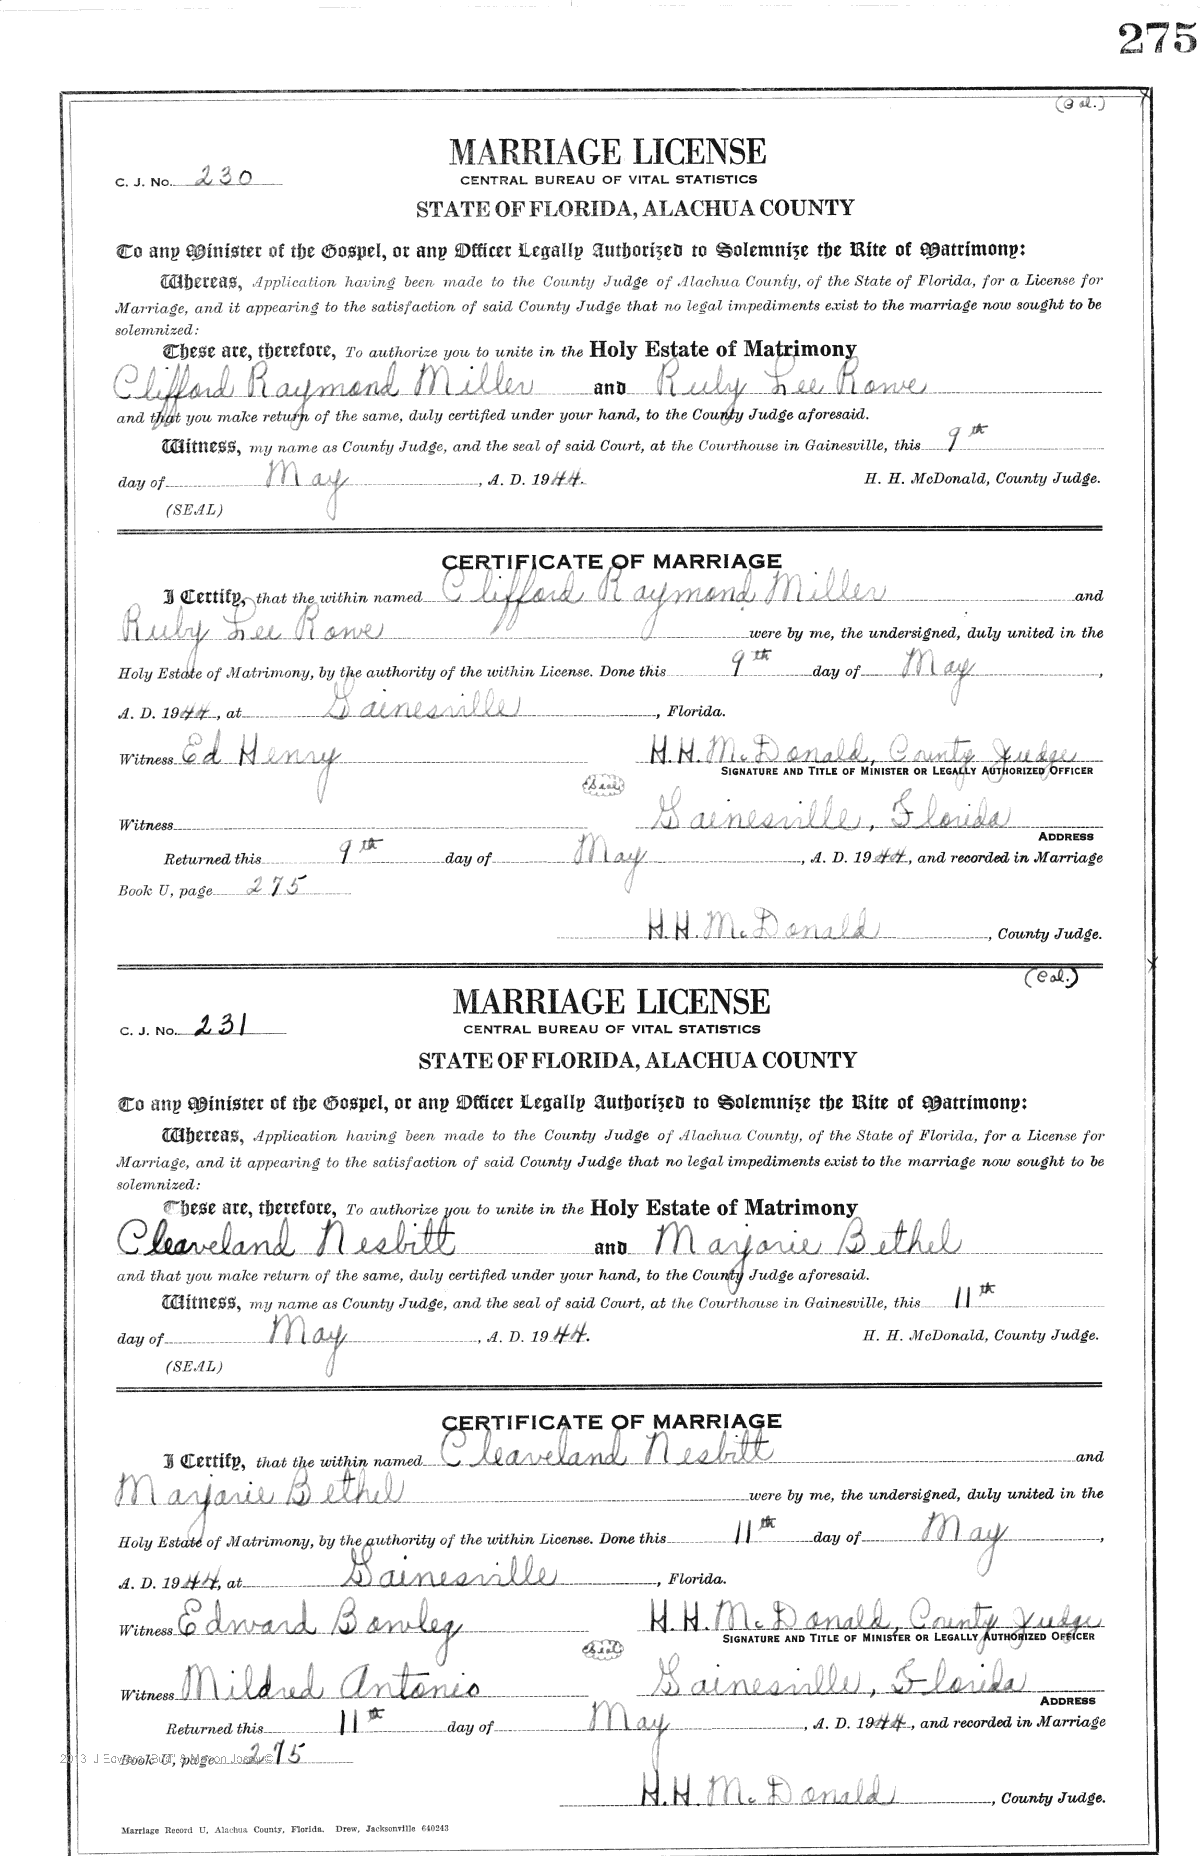 275
(Col.)
MARRIAGE LICENSE
C. J. No. 230
CENTRAL BUREAU OF VITAL STATISTICS
STATE OF FLORIDA, ALACHUA COUNTY
To any Minister of the Gospel, or any Officer Legally Authorized to Solemnize the Rite of Matrimony:
Whereas, Application having been made to the County Judge of Alachua County, of the State of Florida, for a License for
Marriage, and it appearing to the satisfaction of said County Judge that no legal impediments exist to the marriage now sought to be
solemnized:
These are, therefore, To authorize you to unite in the Holy Estate of Matrimony
Clifford Raymond Miller and Ruby Lee Rowe
and that you make return of the same, duly certified under your hand, to the County Judge aforesaid.
Witness, my name as County Judge, and the seal of said Court, at the Courthouse in Gainesville, this 9th
day of May, A. D. 1944. H. H. McDonald, County Judge.
(SEAL)
CERTIFICATE OF MARRIAGE
I Certify, that the within named Clifford Raymond Miller and
Ruby Lee Rowe were by me, the undersigned, duly united in the
Holy Estate of Matrimony, by the authority of the within License. Done this 9th day of May,
A. D. 1944, at Gainesville, Florida.
Witness Ed Henry H. H. McDonald, County Judge
SIGNATURE AND TITLE OF MINISTER OR LEGALLY AUTHORIZED OFFICER
(Seal)
Witness Gainesville, Florida
ADDRESS
Returned this 9th day of May, A. D. 1944, and recorded in Marriage
Book U, page 275
H. H. McDonald, County Judge.
(Col.)
MARRIAGE LICENSE
C. J. No. 231
CENTRAL BUREAU OF VITAL STATISTICS
STATE OF FLORIDA, ALACHUA COUNTY
To any Minister of the Gospel, or any Officer Legally Authorized to Solemnize the Rite of Matrimony:
Whereas, Application having been made to the County Judge of Alachua County, of the State of Florida, for a License for
Marriage, and it appearing to the satisfaction of said County Judge that no legal impediments exist to the marriage now sought to be
solemnized:
These are, therefore, To authorize you to unite in the Holy Estate of Matrimony
Cleaveland Nesbitt and Marjorie Bethel
and that you make return of the same, duly certified under your hand, to the County Judge aforesaid.
Witness, my name as County Judge, and the seal of said Court, at the Courthouse in Gainesville, this 11th
day of May, A. D. 1944. H. H. McDonald, County Judge.
(SEAL)
CERTIFICATE OF MARRIAGE
I Certify, that the within named Cleaveland Nesbitt and
Marjorie Bethel were by me, the undersigned, duly united in the
Holy Estate of Matrimony, by the authority of the within License. Done this 11th day of May,
A. D. 1944, at Gainesville, Florida.
Witness Edward Bowleg H. H. McDonald, County Judge
SIGNATURE AND TITLE OF MINISTER OR LEGALLY AUTHORIZED OFFICER
(Seal)
Witness Mildred Antonio Gainesville, Florida
ADDRESS
Returned this 11th day of May, A. D. 1944, and recorded in Marriage
Book U, page 275
H. H. McDonald, County Judge.
Marriage Record U, Alachua County, Florida. Drew, Jacksonville 640243